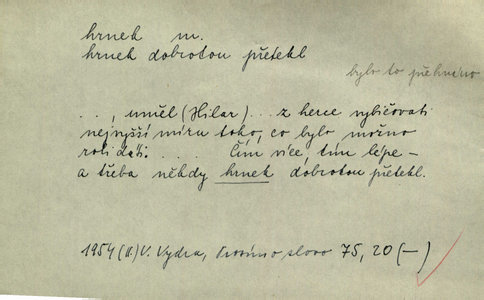 hrnek m.
hrnek dobrotou přetekl
bylo to přehnáno
. . ., uměl (Hilar) . . . z herce vybičovati
nejvyšší míru toho, co bylo možno
roli dáti. . . . Čím více, tím lépe –
a třeba někdy hrnek dobrotou přetekl.
1954 (II.) V. Vydra, Prosím o slovo 75, 20 (—)